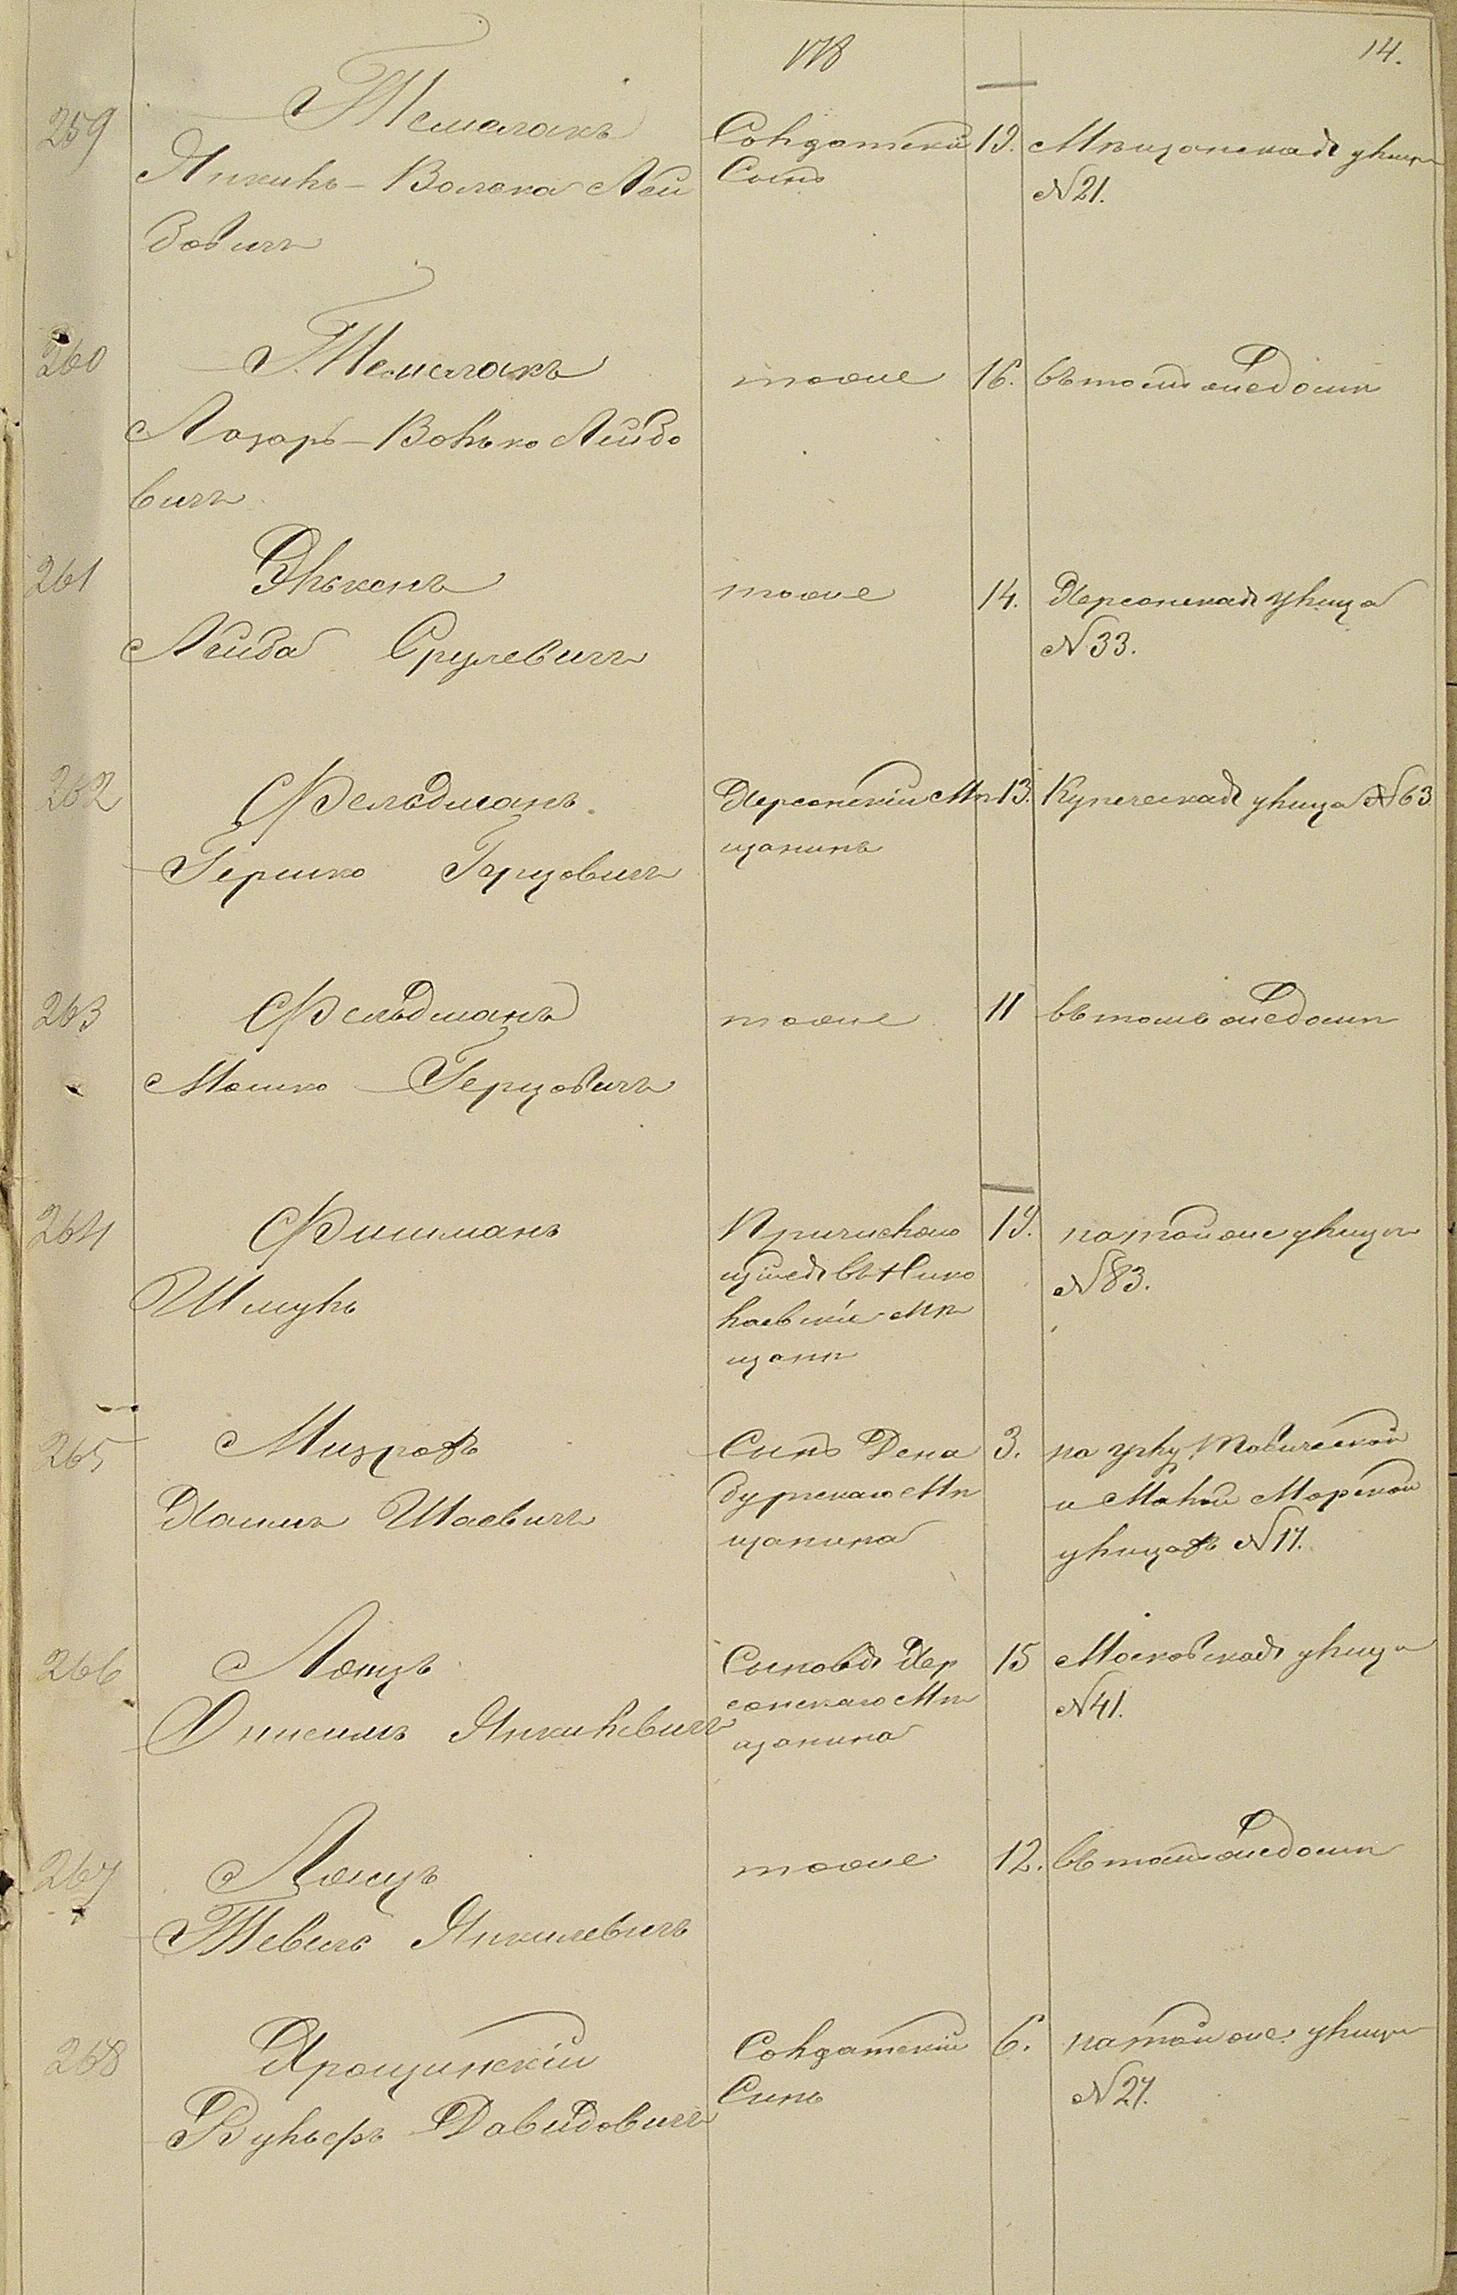 178
14.
259
Темалакъ
Янкель-Волока Лей
бовичъ
Солдатскій
Сынъ
19. Мѣщанская улица
№21.
260
Темалакъ
Лазарь-Волько Лейбо
вичъ
тоже
16. въ томъ же домѣ
261
Элькенъ
Лейба Срулевичъ
тоже
14. Херсонская улица
№33.
262
Фельдманъ
Гершко Герцовичъ
Херсонскій Мѣ
щанинъ
13. Купеческая улица №63
263
Фельдманъ
Мошко Герцовичъ
тоже
11 въ томъ же домѣ
264
Фишманъ
Шмуль
въ Нико
лаевскіе Мѣ
щане
19. на той же улицѣ
№83.
265
Мизровъ
Хаимъ Шаевичъ
Сынъ Дена
бургскаго Мѣ
щанина
3. на углу Таврической
и Малой Морской
улицъ №17.
266
Янкелевичъ
Сыновья Хер
сонскаго Мѣ
щанина
15 Московская улица
№41.
267
Тевель Янкелевичъ
тоже
12. въ томъ же домѣ
268
Ярошинскій
Вульфъ Давидовичъ
Солдатскій
Сынъ
6. на той же улицѣ
№27.